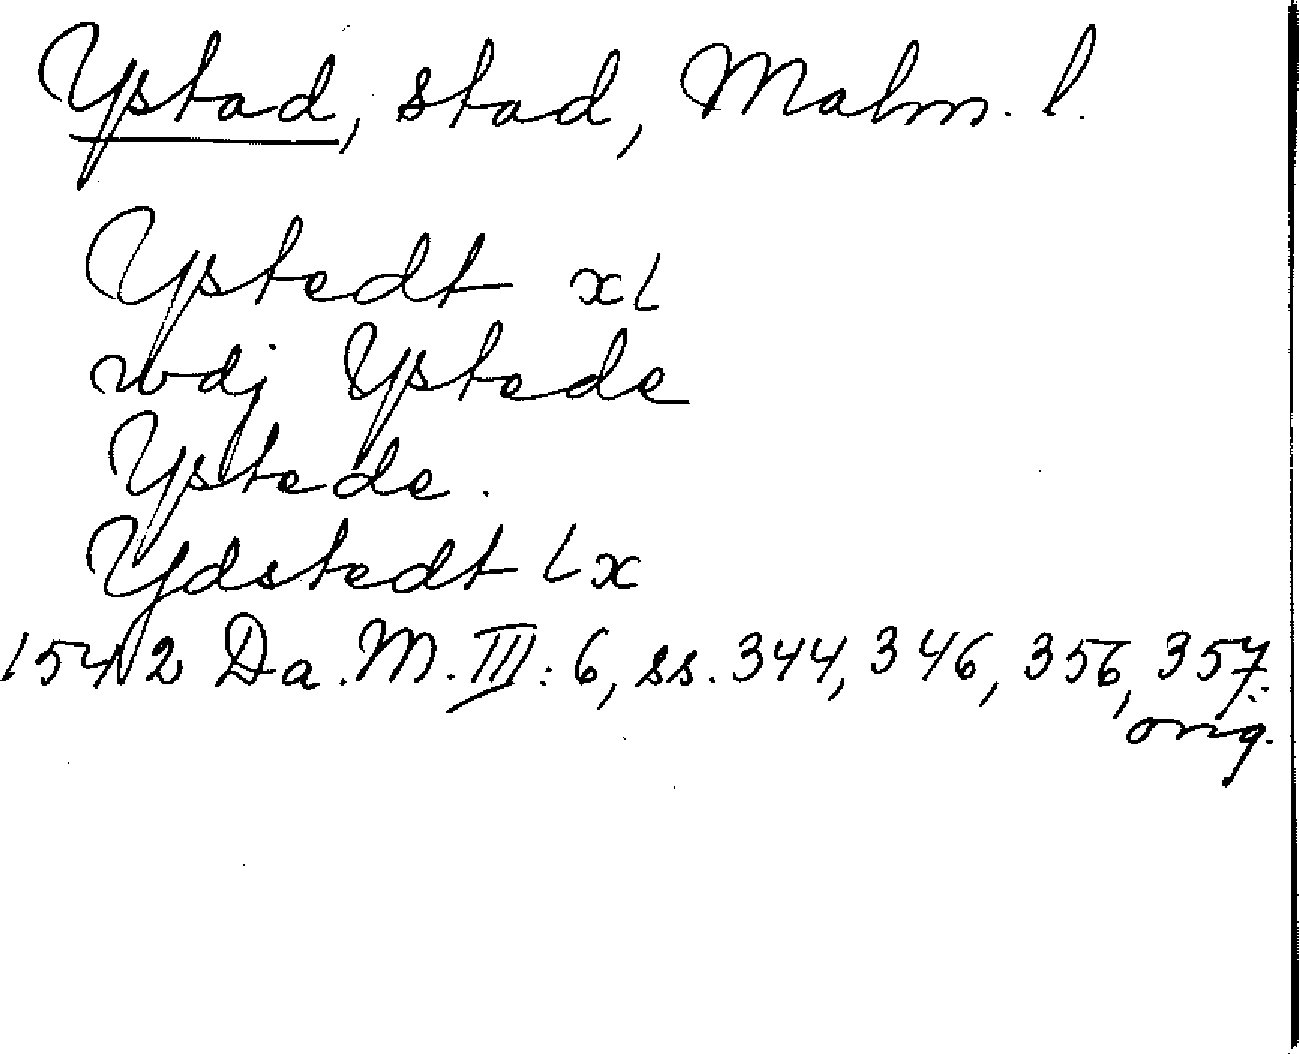 Ystad, stad, Malm. l.
Ystedt x L
wdj Ystede
Ystede.
Ydstedt L x
1542 Da. M. III: 6, ss. 344, 346, 356, 357.
orig.